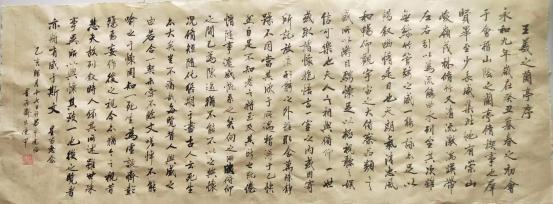 王羲之蘭亭序
永和九年歲在癸丑暮春之初會
于會稽山陰之蘭亭脩稧事也群
賢畢至少長咸集此地有崇山
峻領茂林脩竹又有清流激湍暎帶
左右引以為流觴曲水列坐其次雖
無絲竹管弦之盛一觴一詠亦足以
暢敘幽情是日也天朗氣清惠風
和暢仰觀宇宙之大俯察品類之
盛所以遊目騁懷足以極視聽之娛
信可樂也夫人之相與俯仰一世
或取諸懷抱悟言一室之內或因寄
所託放浪形骸之外雖趣舍萬殊靜
躁不同當其欣於所遇暫得於己快
然自足不知老之將至及其所之既惓
情隨事遷感慨係之矣向之所欣俛仰
之間已為陳迹猶不能不以之興懷
況脩短隨化終期於盡古人云死生
亦大矣豈不痛哉每攬昔人興感之
由若合一契未嘗不臨文嗟悼不能
喻之於懷固知死生為虛誕齊彭
殤為妄作後之視今亦由今之視昔
悲夫故列敘時人錄其所述雖世殊
事異所以興懷其致一也後之覽者
亦將有感於斯文